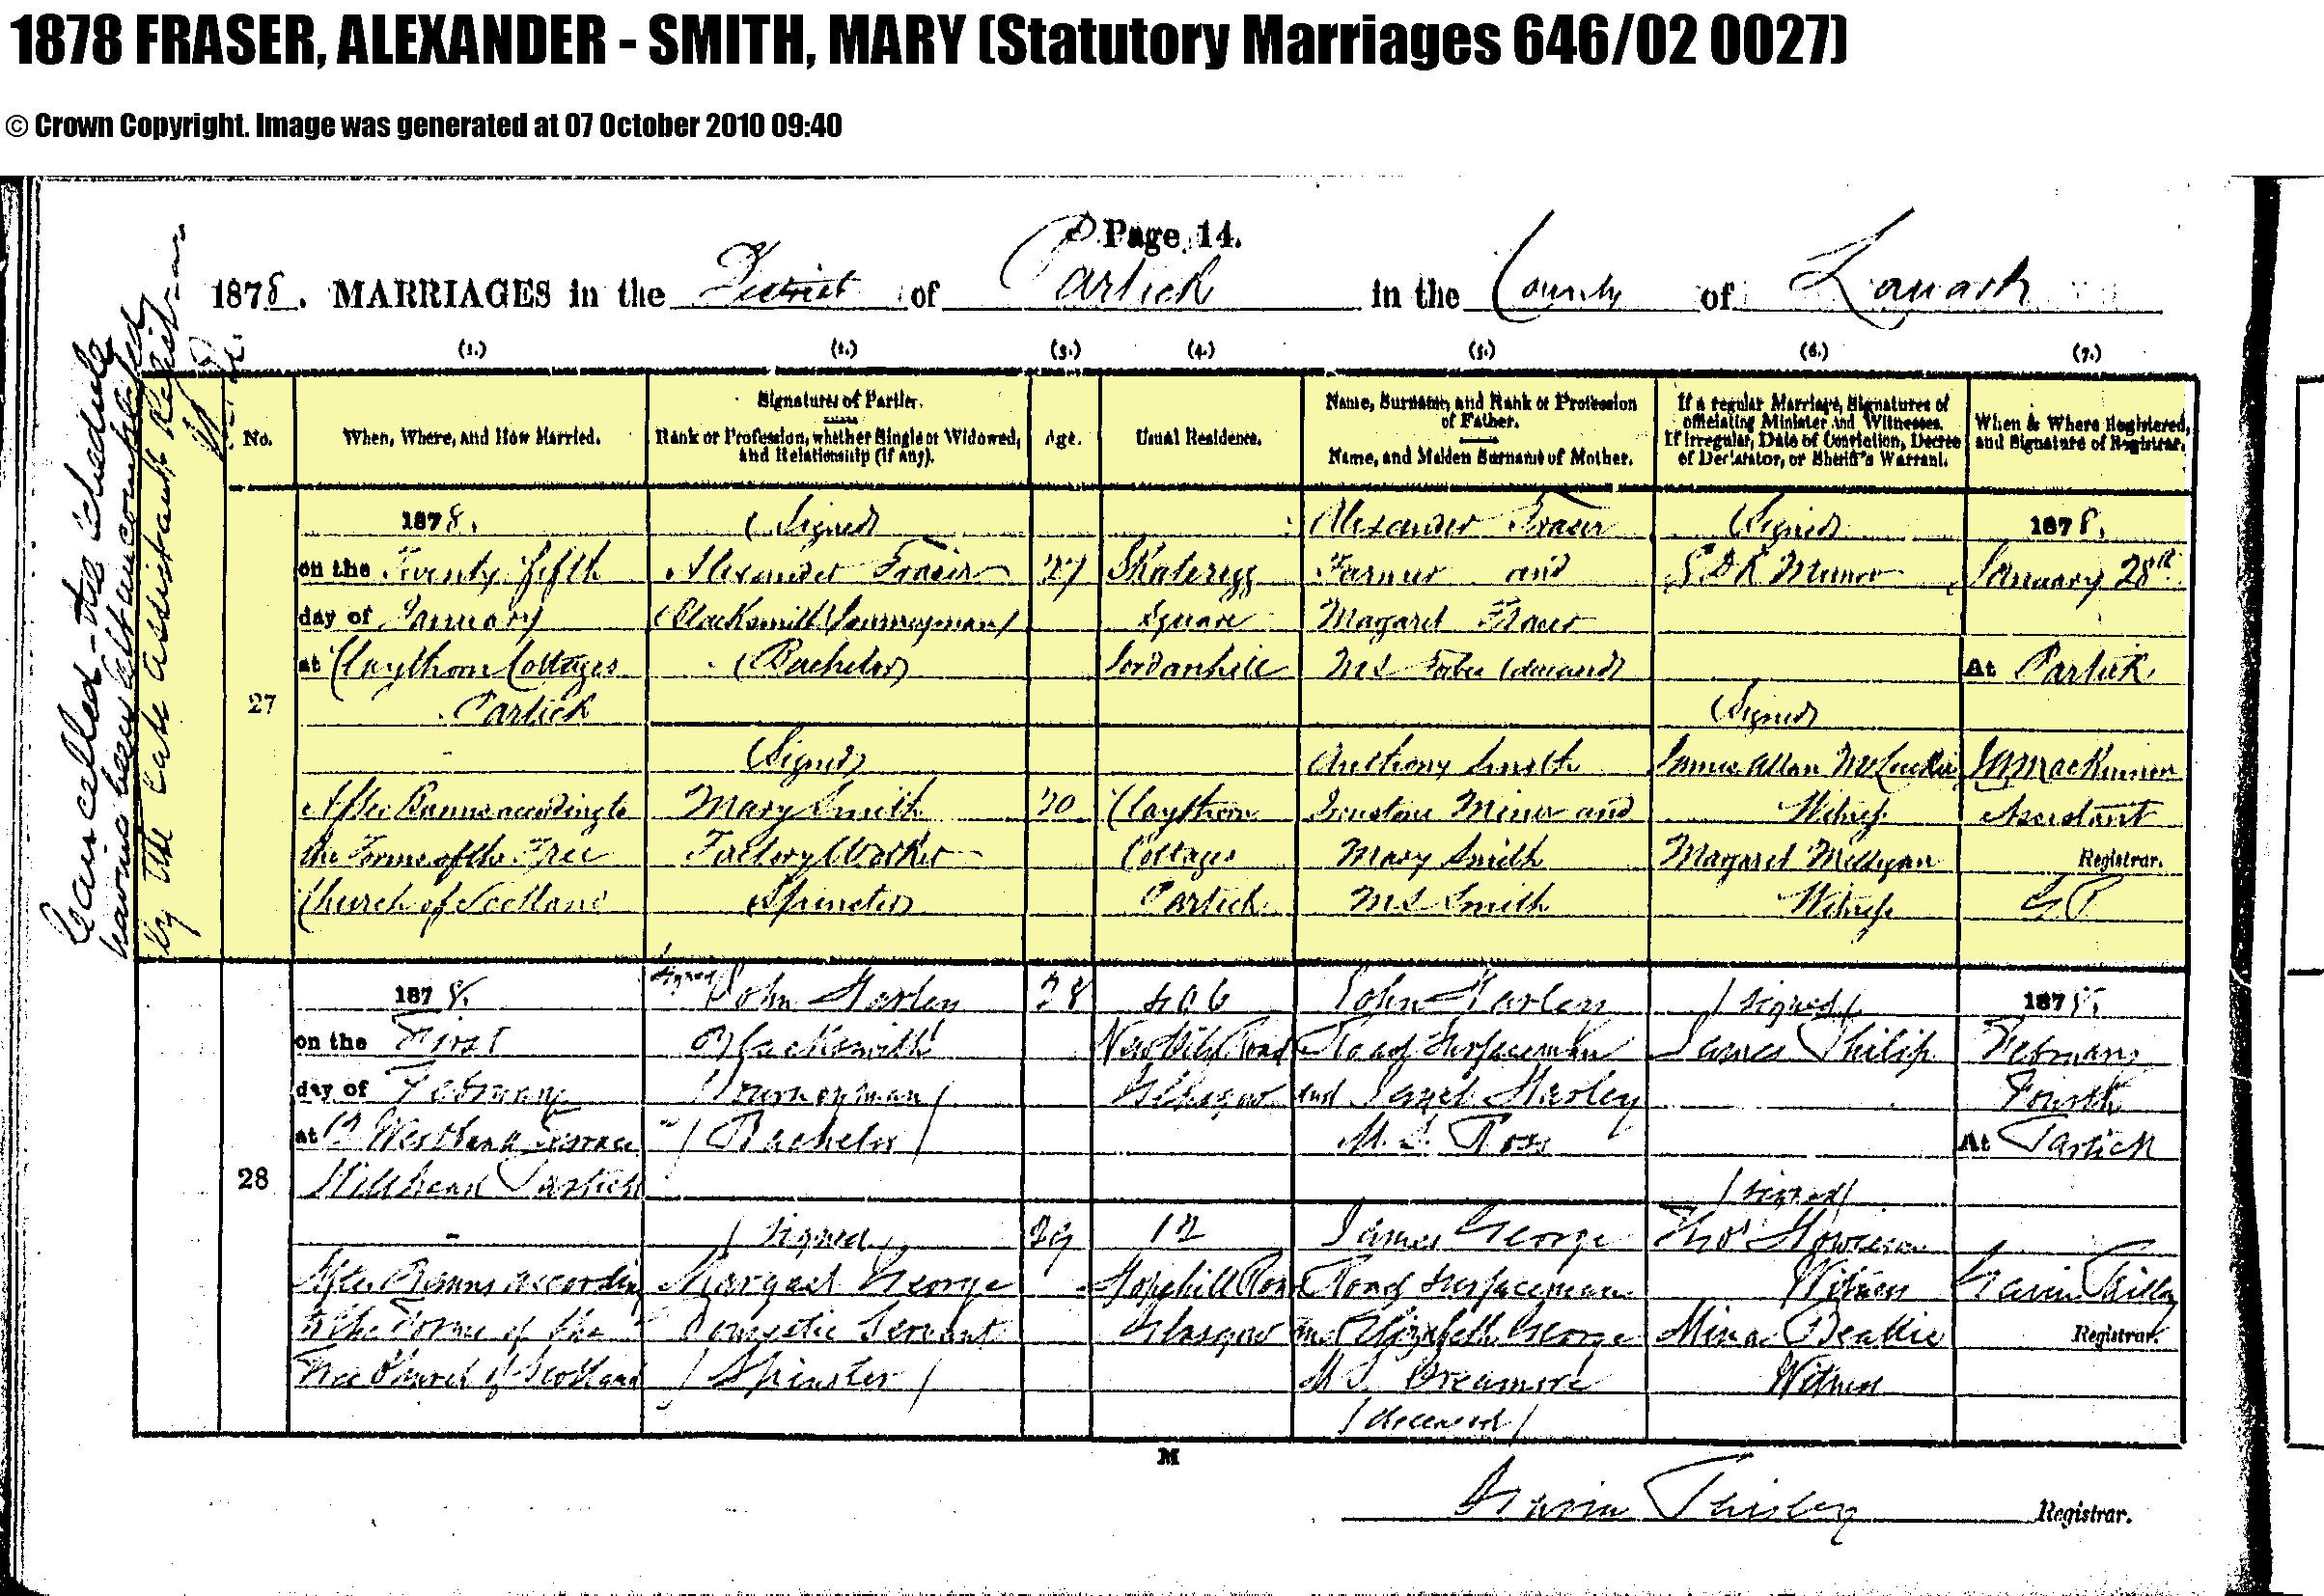 1878 FRASER, ALEXANDER - SMITH, MARY (Statutory Marriages 646/02 0027)
© Crown Copyright. Image was generated at 07 October 2010 09:40
Page 14.
1878. MARRIAGES in the District of Partick in the County of Lanark
(1.) (2.) (3.) (4.) (5.) (6.) (7.)
No.
When, Where, and How Married.
Signatures of Parties.
Rank or Profession, whether Single or Widowed,
and Relationship (if any).
Age.
Usual Residence.
Name, Surname, and Rank or Profession
of Father.
Name, and Maiden Surname of Mother.
If a regular Marriage, Signatures of
officiating Minister and Witnesses.
If irregular, Date of Conviction, Decree
of Declarator, or Sheriff's Warrant.
When & Where Registered,
and Signature of Registrar.
Cancelled - the schedule
having been
by the late Assistant Registrar
27
1878.
on the Twenty fifth
day of January
at Claythorn Cottages
Partick
After Banns according to
the Forms of the Free
Church of Scotland
(Signed)
Alexander Fraser
Blacksmith (Journeyman)
(Bachelor)
(Signed)
Mary Smith
Factory Worker
(Spinster)
27
20
Skaterigg
Square
Jordanhill
Claythorn
Cottages
Partick
Alexander Fraser
Farmer and
Margaret Fraser
M.S. Forbes (deceased)
Anthony Smith
Ironstone Miner and
Mary Smith
M.S. Smith
(Signed)
Munro
(Signed)
James Allan
Witness
Margaret Milligan
Witness
1878.
January 28th
At Partick
MacKinnon
Assistant
Registrar.
28
1878.
on the First
day of February
at 12 Westbank Terrace
Hillhead Partick
After Banns according
to the Forms of the
Free Church of Scotland
Signed John Harley
Blacksmith
Journeyman
(Bachelor)
(Signed)
Margaret George
Domestic Servant
(Spinster)
28
29
406
New City Road
Glasgow
12
Hopehill Road
Glasgow
John Harley
Road Surfaceman
and Janet Harley
M.S. Ross
James George
Road Surfaceman
and Elizabeth George
M.S.
(deceased)
(Signed)
James Philip
(Signed)
Thos Howieson
Witness
Mina Beattie
Witness
1878.
February
Fourth
At Partick
Gavin
Registrar.
M
Gavin
Registrar.